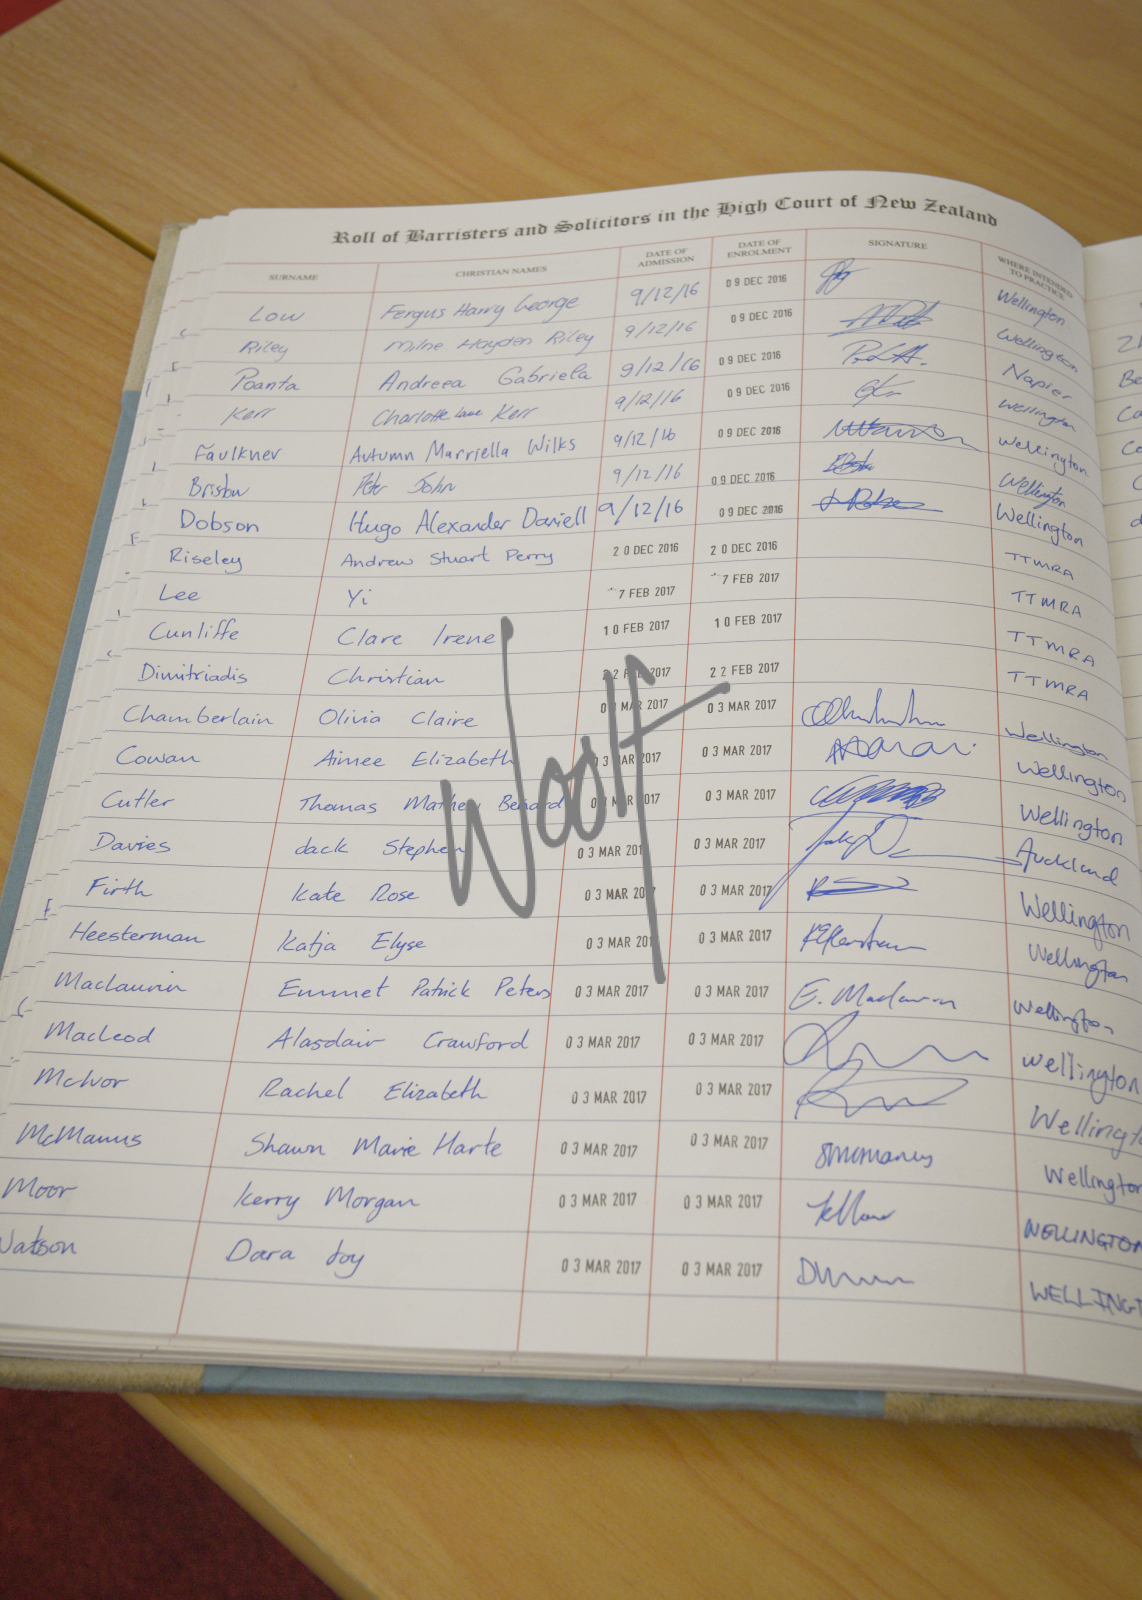 Roll of Barristers and Solicitors in the High Court of New Zealand
SURNAME CHRISTIAN NAMES DATE OF ADMISSION DATE OF ENROLMENT SIGNATURE WHERE INTENDED TO PRACTICE
Low Fergus Harry George 9/12/16 09 DEC 2016 Wellington
Riley Milne Hayden Riley 9/12/16 09 DEC 2016 Wellington
Poanta Andreea Gabriela 9/12/16 09 DEC 2016 Napier
Kerr Charlotte Jane Kerr 9/12/16 09 DEC 2016 Wellington
Faulkner Autumn Marriella Wilks 9/12/16 09 DEC 2016 Wellington
Brisbw Peter John 9/12/16 09 DEC 2016 Wellington
Dobson Hugo Alexander Daniell 9/12/16 09 DEC 2016 Wellington
Riseley Andrew Stuart Perry 20 DEC 2016 20 DEC 2016 TTMRA
Lee Yi 7 FEB 2017 7 FEB 2017 TTMRA
Cunliffe Clare Irene 10 FEB 2017 10 FEB 2017 TTMRA
Dimitriadis Christian 22 FEB 2017 22 FEB 2017 TTMRA
Chamberlain Olivia Claire 03 MAR 2017 03 MAR 2017 Wellington
Cowan Aimee Elizabeth 03 MAR 2017 03 MAR 2017 Wellington
Cutler Thomas Mathew Benard 03 MAR 2017 03 MAR 2017 Wellington
Davies Jack Stephen 03 MAR 2017 03 MAR 2017 Auckland
Firth Kate Rose 03 MAR 2017 03 MAR 2017 Wellington
Heesterman Katja Elyse 03 MAR 2017 03 MAR 2017 Wellington
Maclaurin Emmet Patrick Peters 03 MAR 2017 03 MAR 2017 E. Maclaurin Wellington
MacLeod Alasdair Crawford 03 MAR 2017 03 MAR 2017 Wellington
McIvor Rachel Elizabeth 03 MAR 2017 03 MAR 2017 Wellingto
McManus Shawn Marie Harte 03 MAR 2017 03 MAR 2017 SMcManus Wellington
Moor Kerry Morgan 03 MAR 2017 03 MAR 2017 WELLINGTON
Watson Dara Joy 03 MAR 2017 03 MAR 2017 WELLINGT
Woolf